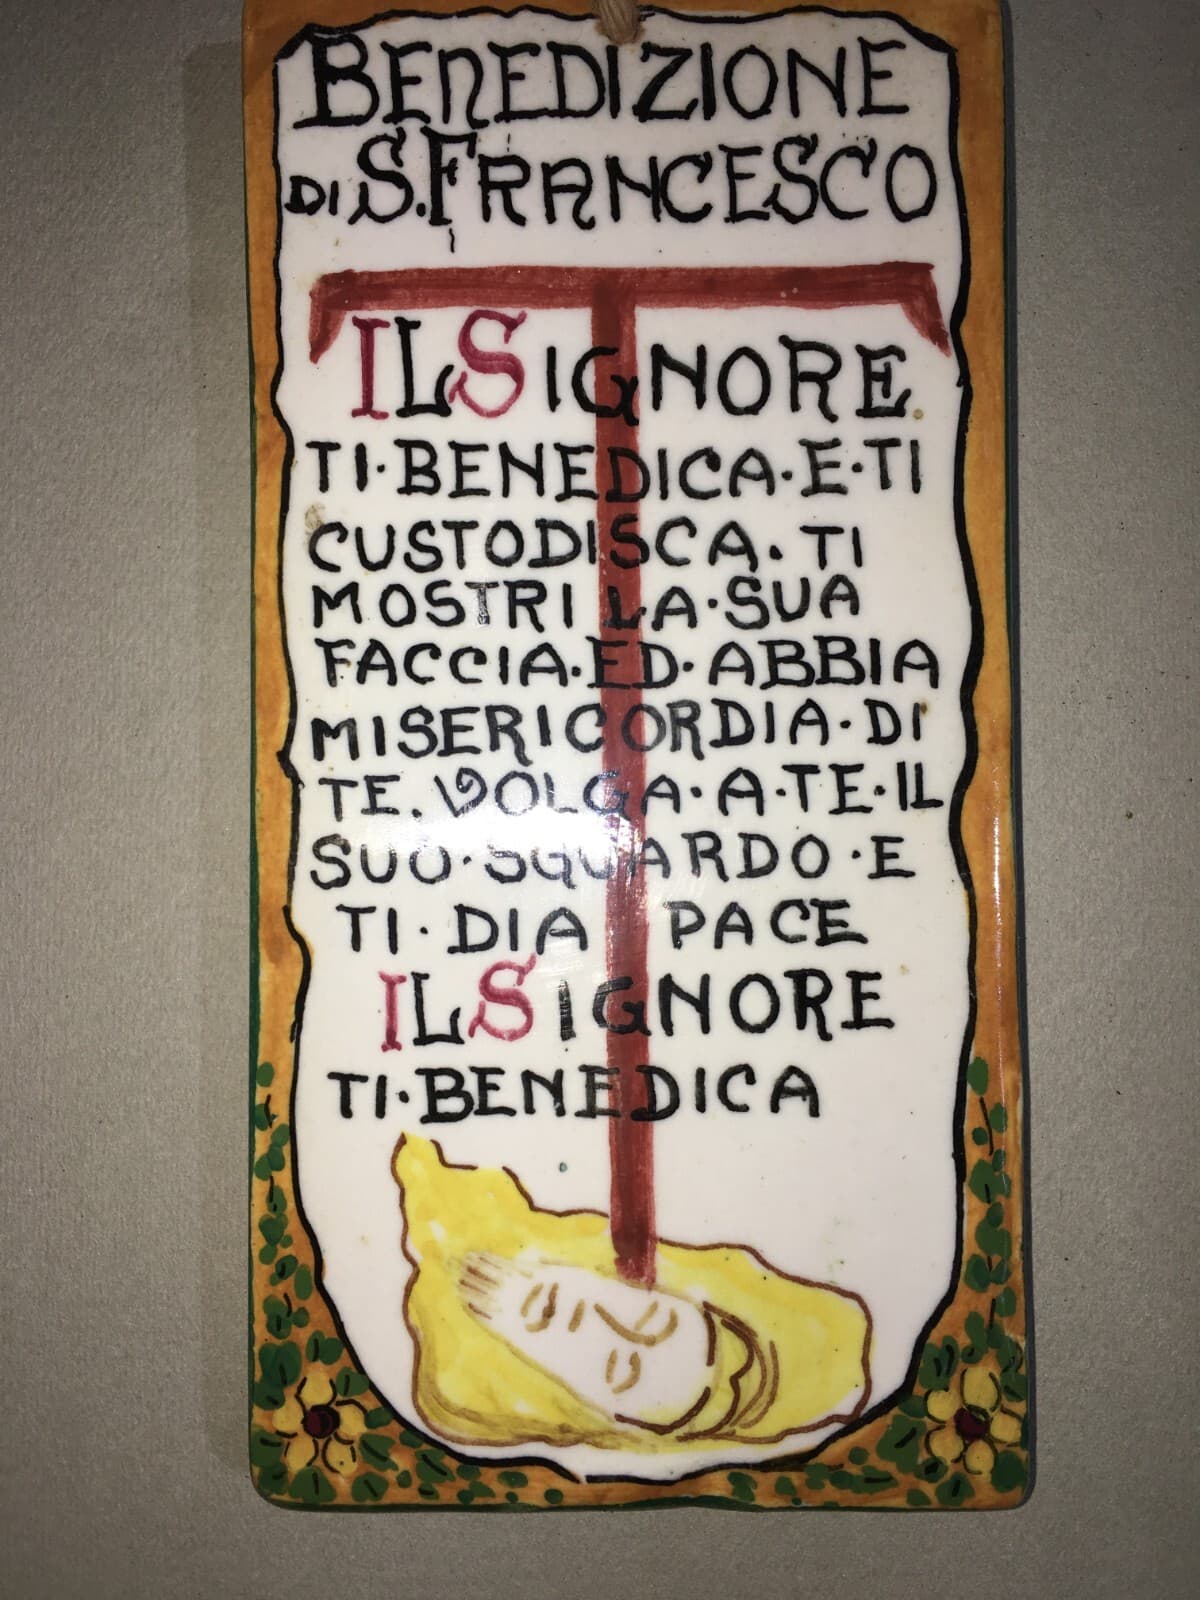 BENEDIZIONE
DI S. FRANCESCO
IL SIGNORE
TI·BENEDICA·E·TI
CUSTODISCA. TI
MOSTRI LA·SUA
FACCIA·ED·ABBIA
MISERICORDIA·DI
TE. VOLGA·A·TE·IL
SUO·SGUARDO·E
TI·DIA PACE
IL SIGNORE
TI·BENEDICA